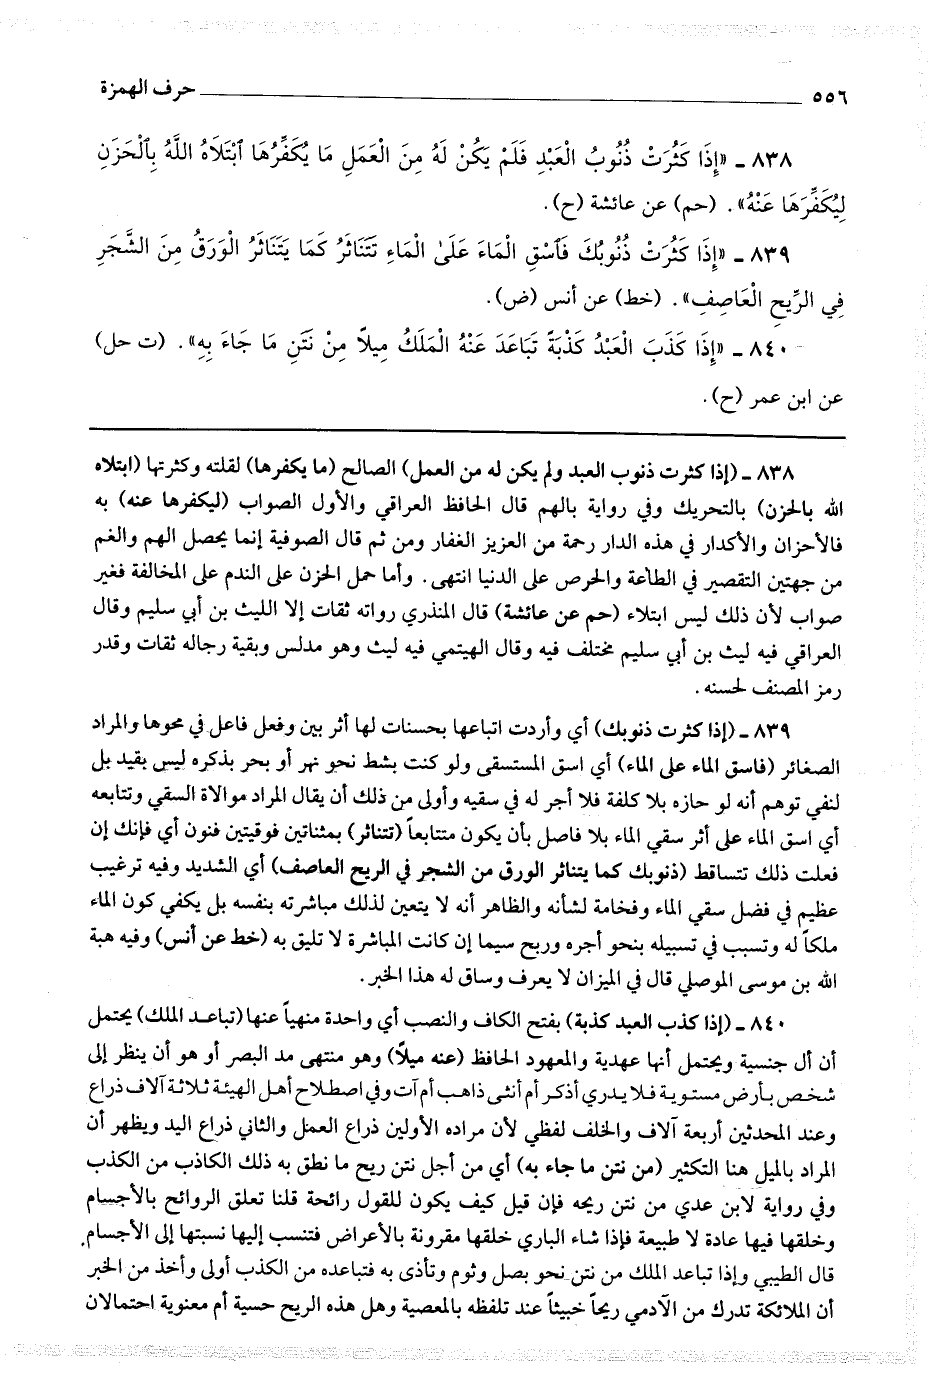 ٥٥٦ ــــــــــــــــــــــــــــــــــــــــ حرف الهمزة
٨٣٨ ـ «إِذَا كَثُرَتْ ذُنُوبُ الْعَبْدِ فَلَمْ يَكُنْ لَهُ مِنَ الْعَمَلِ مَا يُكَفِّرُهَا ٱبْتَلَاهُ اللَّهُ بِٱلْحَزَنِ
لِيُكَفِّرَهَا عَنْهُ». (حم) عن عائشة (ح).
٨٣٩ ـ «إِذَا كَثُرَتْ ذُنُوبُكَ فَٱسْقِ الْمَاءَ عَلَىٰ الْمَاءِ تَتَنَاثَرُ كَمَا يَتَنَاثَرُ الْوَرَقُ مِنَ الشَّجَرِ
فِي الرِّيحِ الْعَاصِفِ». (خط) عن أنس (ض).
٨٤٠ ـ «إِذَا كَذَبَ الْعَبْدُ كَذْبَةً تَبَاعَدَ عَنْهُ الْمَلَكُ مِيلاً مِنْ نَتَنِ مَا جَاءَ بِهِ». (ت حل)
عن ابن عمر (ح).
٨٣٨ ـ (إذا كثرت ذنوب العبد ولم يكن له من العمل) الصالح (ما يكفرها) لقلته وكثرتها (ابتلاه
الله بالحزن) بالتحريك وفي رواية بالهم قال الحافظ العراقي والأول الصواب (ليكفرها عنه) به
فالأحزان والأكدار في هذه الدار رحمة من العزيز الغفار ومن ثم قال الصوفية إنما يحصل الهم والغم
من جهتين التقصير في الطاعة والحرص على الدنيا انتهى. وأما حمل الحزن على الندم على المخالفة فغير
صواب لأن ذلك ليس ابتلاء (حم عن عائشة) قال المنذري رواته ثقات إلا الليث بن أبي سليم وقال
العراقي فيه ليث بن أبي سليم مختلف فيه وقال الهيتمي فيه ليث وهو مدلس وبقية رجاله ثقات وقدر
رمز المصنف لحسنه.
٨٣٩ ـ (إذا كثرت ذنوبك) أي وأردت اتباعها بحسنات لها أثر بين وفعل فاعل في محوها والمراد
الصغائر (فاسق الماء على الماء) أي اسق المستسقى ولو كنت بشط نحو نهر أو بحر بذكره ليس بقيد بل
لنفي توهم أنه لو حازه بلا كلفة فلا أجر له في سقيه وأولى من ذلك أن يقال المراد موالاة السقي وتتابعه
أي اسق الماء على أثر سقي الماء بلا فاصل بأن يكون متتابعاً (تتناثر) بمثناتين فوقيتين فنون أي فإنك إن
فعلت ذلك تتساقط (ذنوبك كما يتناثر الورق من الشجر في الريح العاصف) أي الشديد وفيه ترغيب
عظيم في فضل سقي الماء وفخامة لشأنه والظاهر أنه لا يتعين لذلك مباشرته بنفسه بل يكفي كون الماء
ملكاً له وتسبب في تسبيله بنحو أجره وربح سيما إن كانت المباشرة لا تليق به (خط عن أنس) وفيه هبة
الله بن موسى الموصلي قال في الميزان لا يعرف وساق له هذا الخبر.
٨٤٠ ـ (إذا كذب العبد كذبة) بفتح الكاف والنصب أي واحدة منهياً عنها (تباعد الملك) يحتمل
أن أل جنسية ويحتمل أنها عهدية والمعهود الحافظ (عنه ميلاً) وهو منتهى مد البصر أو هو أن ينظر إلى
شخص بأرض مستوية فلا يدري أذكر أم أنثى ذاهب أم آت وفي اصطلاح أهل الهيئة ثلاثة آلاف ذراع
وعند المحدثين أربعة آلاف والخلف لفظي لأن مراده الأولين ذراع العمل والثاني ذراع اليد ويظهر أن
المراد بالميل هنا التكثير (من نتن ما جاء به) أي من أجل نتن ريح ما نطق به ذلك الكاذب من الكذب
وفي رواية لابن عدي من نتن ريحه فإن قيل كيف يكون للقول رائحة قلنا تعلق الروائح بالأجسام
وخلقها فيها عادة لا طبيعة فإذا شاء الباري خلقها مقرونة بالأعراض فتنسب إليها نسبتها إلى الأجسام.
قال الطيبي وإذا تباعد الملك من نتن نحو بصل وثوم وتأذى به فتباعده من الكذب أولى وأخذ من الخبر
أن الملائكة تدرك من الآدمي ريحاً خبيثاً عند تلفظه بالمعصية وهل هذه الريح حسية أم معنوية احتمالان